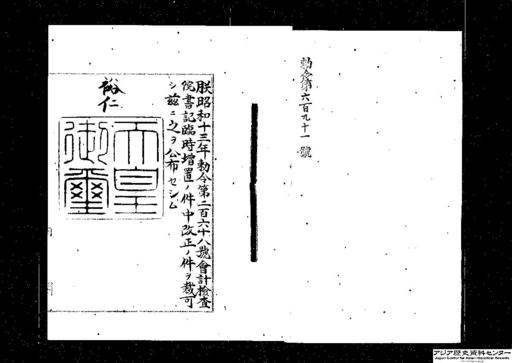 勅令第六百九十一號
朕昭和十三年勅令第二百六十八號會計檢査
院書記臨時增置ノ件中改正ノ件ヲ裁可
シ茲ニ之ヲ公布セシム
裕仁
天皇
御璽
アジア歴史資料センター
Japan Center for Asian Historical Records